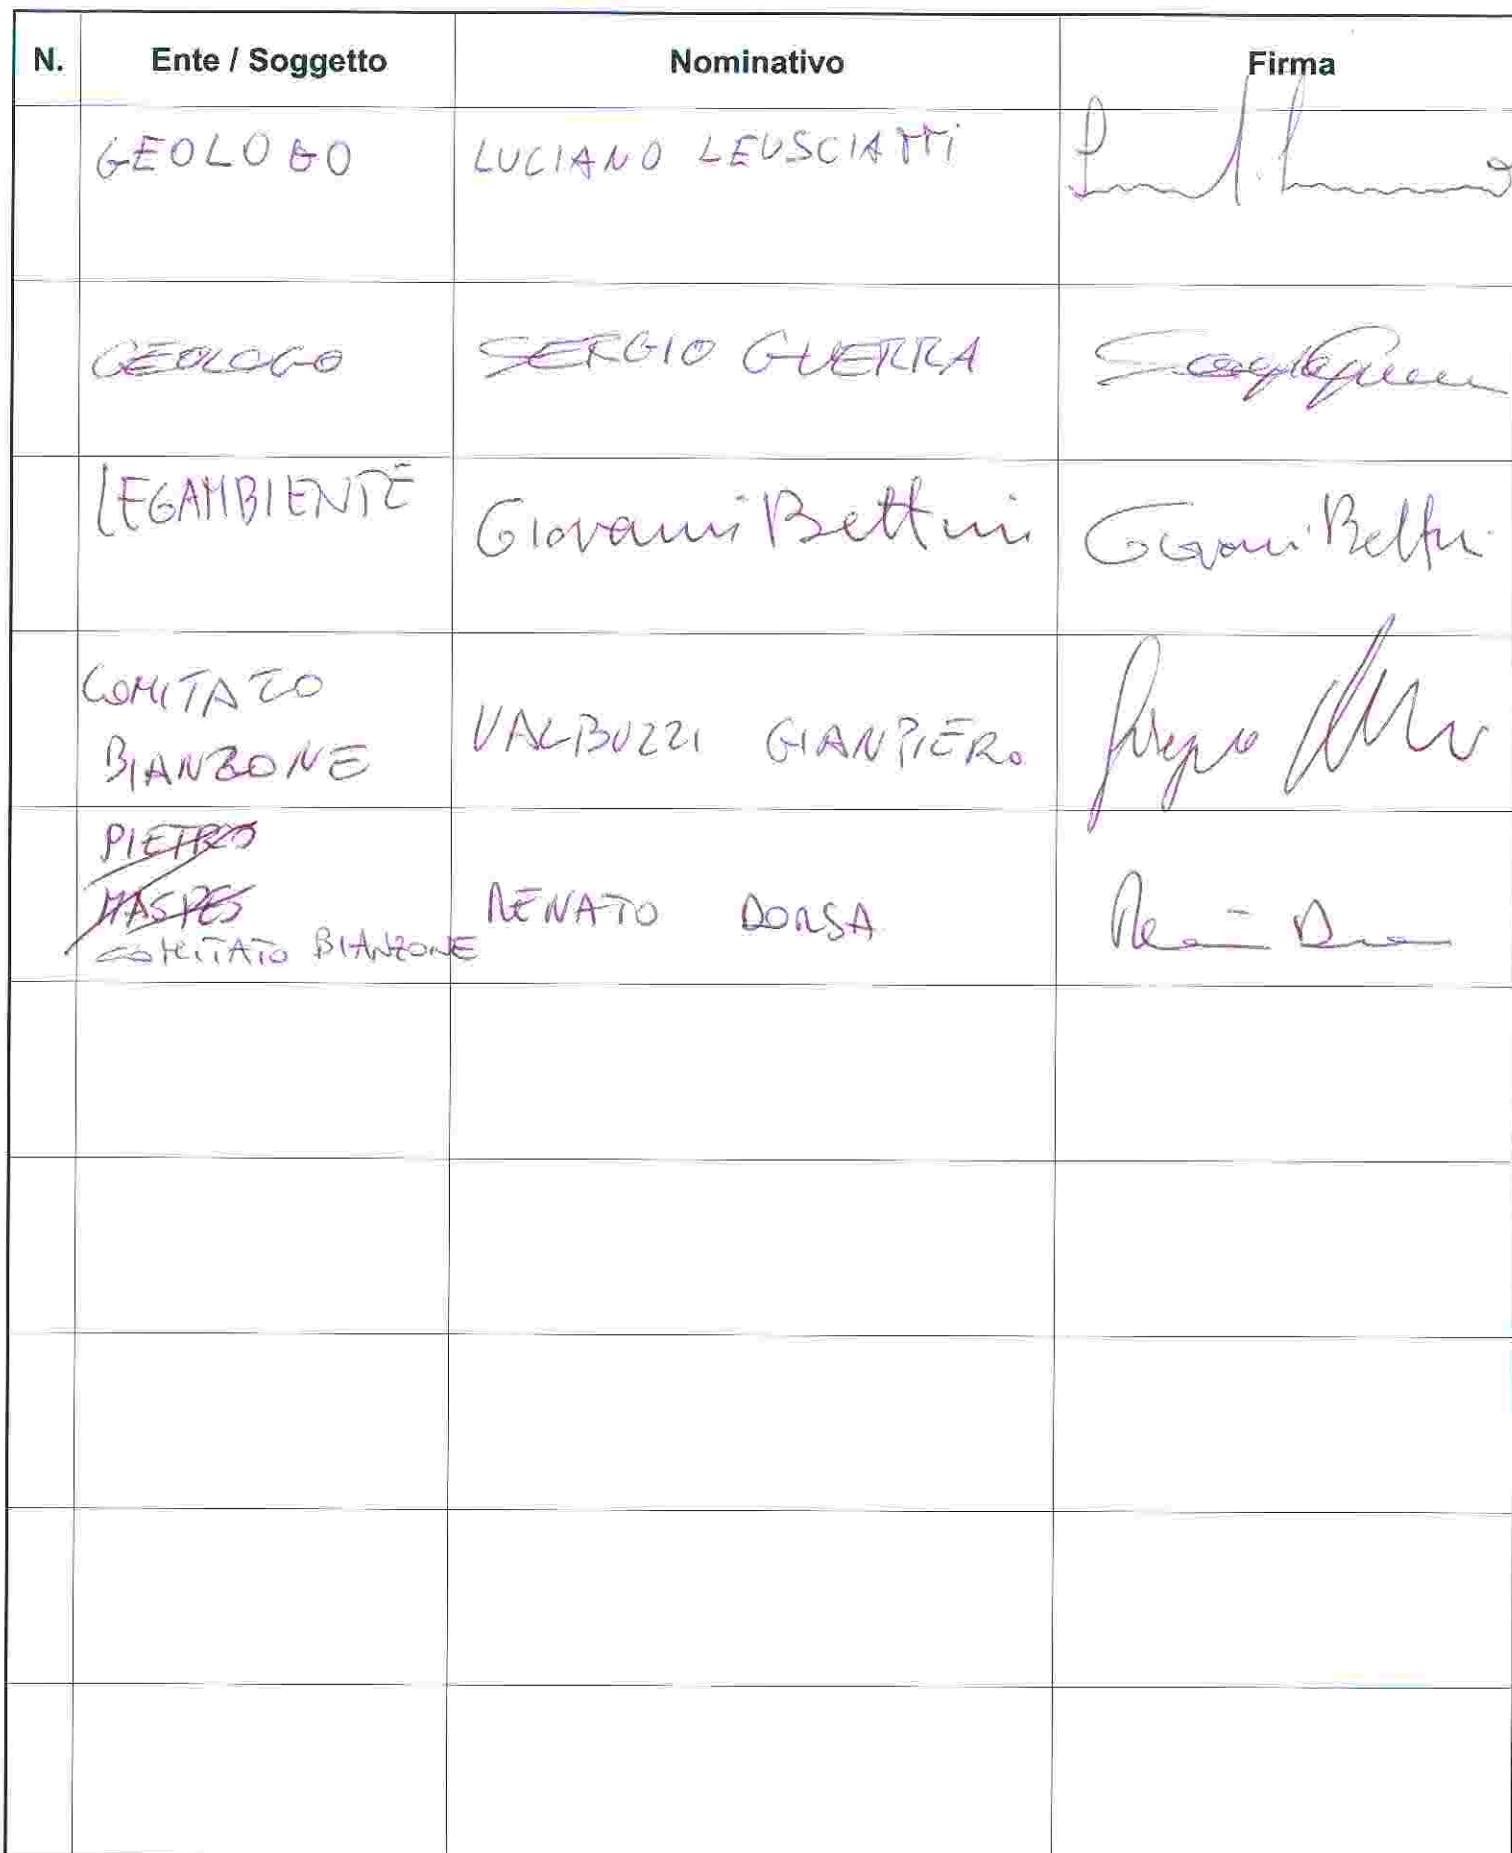 N. Ente / Soggetto Nominativo Firma
GEOLOGO LUCIANO LEUSCIATTI
GEOLOGO SERGIO GUERRA
LEGAMBIENTE Giovanni Bettini Giovanni Bettini
COMITATO
BIANZONE VALBUZZI GIANPIERO
PIETRO
MASPES RENATO DORSA
COMITATO BIANZONE